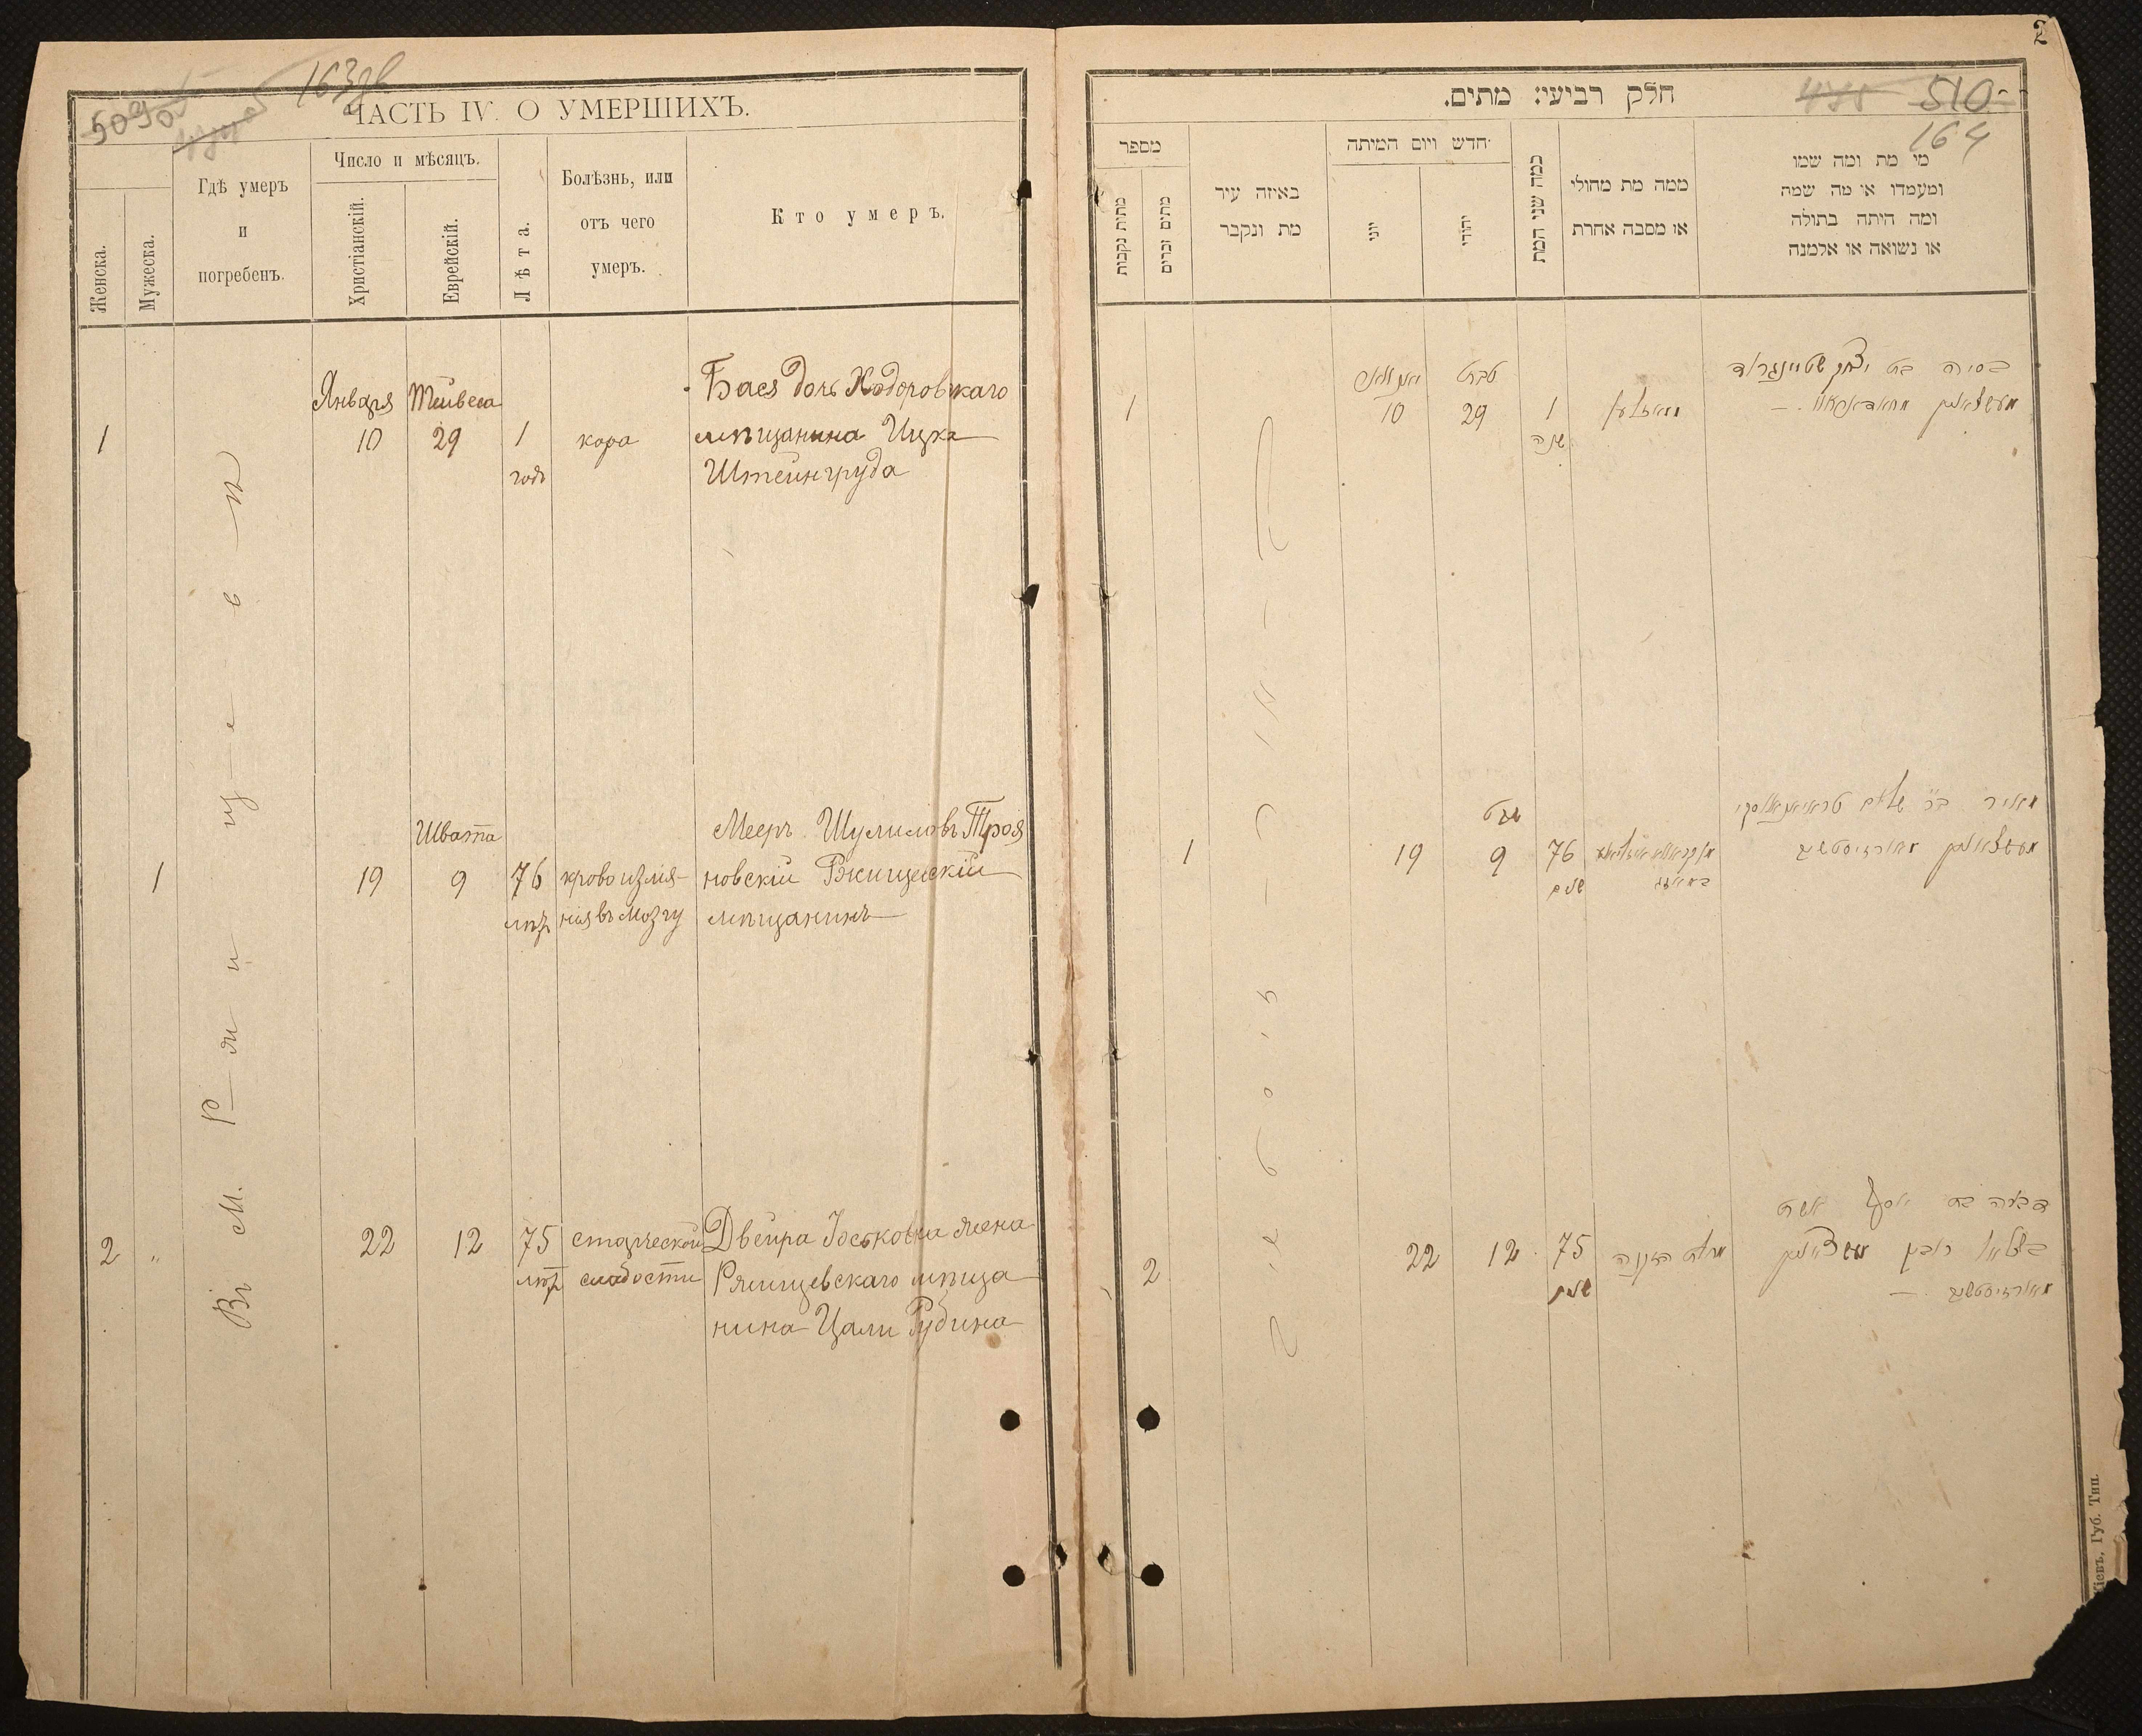 163об
509об
ЧАСТЬ IV. О УМЕРШИХЪ.
Женска.
Мужеска.
Гдѣ умеръ
и
погребенъ.
Число и мѣсяцъ.
Христіанскій.
Еврейскій.
Лѣта.
Болѣзнь, или
отъ чего
умеръ.
Кто умеръ.
Въ м. Ржищевѣ
Января Тейвеса
1 10 29 1 годъ
кора
Бася дочь Ходоровскаго
мѣщанина Ицка
Штейнгруда
Швата
1 19 9 76 лѣт
кровоизлія-
нія въ мозгу
Мееръ Шулимовъ Троя
новскій Ржищевскій
мѣщанинъ
2 " 22 12 75 лѣт
старческой
слабости
Двейра Іоськовна жена
Ржищевскаго мѣща
нина Цали Рубина
2
חלק רביעי: מתים.
510
164
מספר
מתות נקבות
מתים זכרים
באיזה עיר
מת ונקבר
חדש ויום המיתה
יוני
יהודי
כמה שני המת
ממה מת מחולי
או מסבה אחרת
מי מת ומה שמו
ומעמדו או מה שמה
ומה היתה בתולה
או נשואה או אלמנה
טבת
1 10 29 1
שנה
בסיה בת יצחק שטיינגרוד
שבט
1 19 9 76
שנים
מאיר ב"ר שלום טראיאנאווסקי
2 22 12 75
שנים
Кіевъ, Губ. Тип.